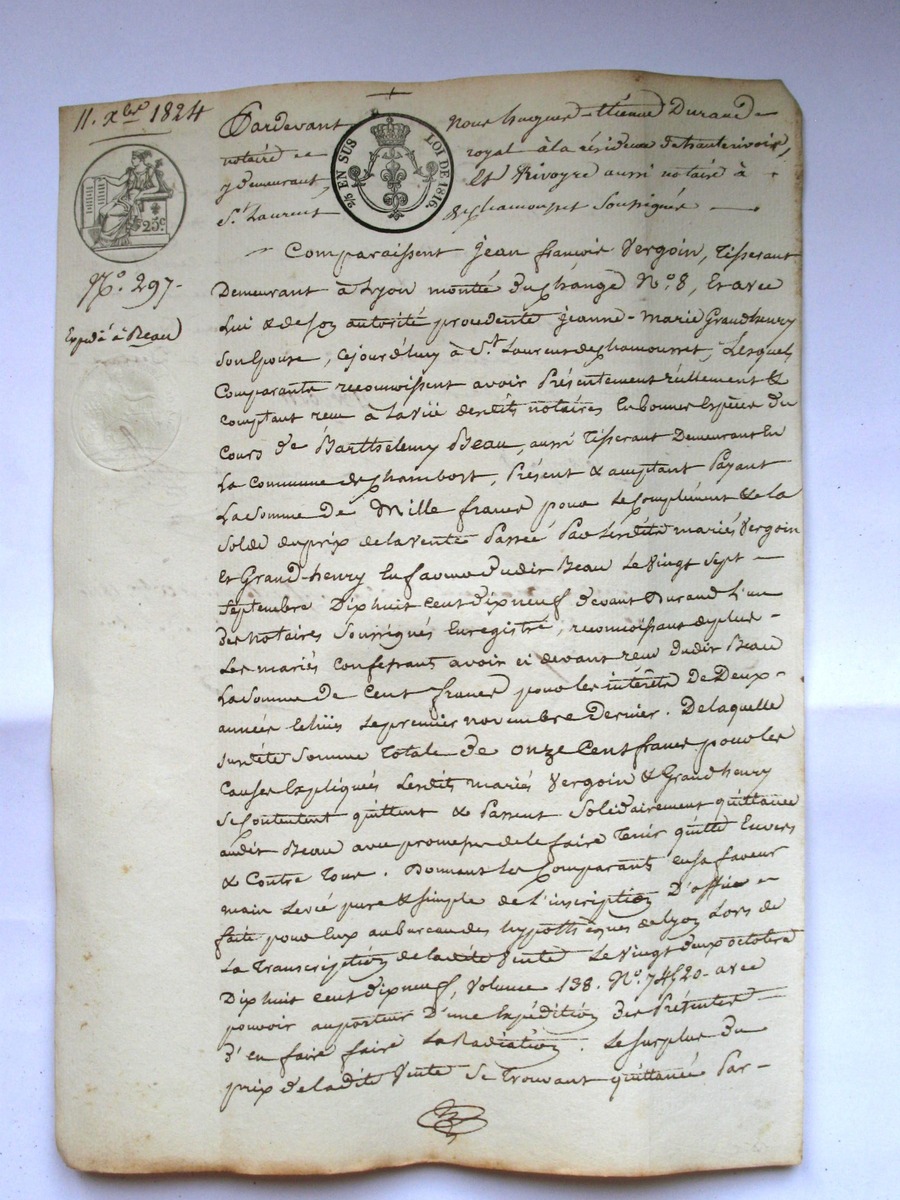 11. xbre 1824
Pardevant Nous hugues-étienne Durand
notaire royal à la résidence d'hauterivoire,
y demeurant, Et Rivoyre aussi notaire à
St. Laurent de chamousset soussignés
2/5 EN SUS LOI DE 1816.
25c.
No. 297-
Expédié à Beau
Comparaissent jean françois Vergoin, Tisserant
Demeurant à Lyon montée du change No. 8, Et avec
Lui & de son autorité procedente jeanne-Marie Grandhenry
son Epouse, cejourd'huy à St. Laurent de chamousset, Lesquels
Comparants reconnoissent avoir Présentement réellement &
comptant reçu à la vüe desdits notaires En bonnes Espèces du
Cours de Barthelemy Beau, aussi Tisserant Demeurant En
La Commune de chambost, Présent & acceptant Payant
La somme De Mille francs pour le Complément & la
solde du prix de la vente Passée Par lesdits mariés Vergoin
Et Grand-henry En faveur dudit Beau le vingt sept
septembre Dix huit cent dix neuf devant Durand L'un
des notaires soussignés Enregistré, reconnoissant de plus
Les mariés confessants avoir ci devant reçu dudit Beau
La somme De Cent francs pour les intérêts De Deux
années Echües le premier novembre Dernier. De laquelle
susdite somme totale de onze cent francs pour les
Causes Expliquées Lesdits mariés Vergoin & Grandhenry
se contentent quittent & Passent solidairement quittance
audit Beau avec promesse de le faire Tenir quitte Envers
& Contre Tous. Donnant les Comparants en sa faveur
main Levée pure & simple de l'inscription D'office
faite pour Eux au bureau des hypothèques de Lyon Lors de
La Transcription de ladite Vente Le Vingt deux octobre
Dix huit cent dix neuf, Volume 138. No. avec
pouvoir au porteur D'une Expédition des Présentes
d'en faire faire La Radiation. Le surplus du
prix de ladite Vente se Trouvant quittancé Par